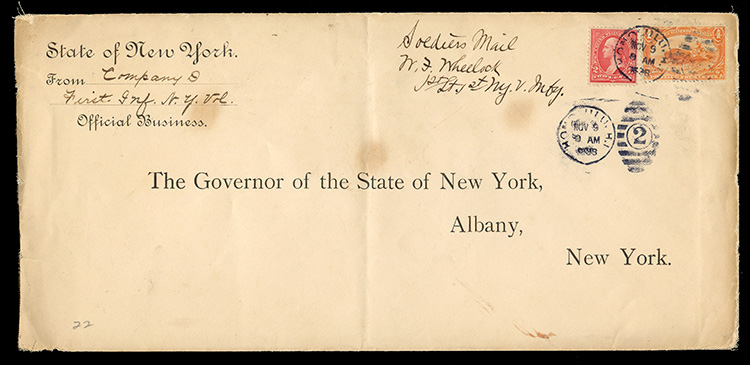 State of New York.
From Company D
First Inf. N.Y. Vol.
Official Business.
Soldiers Mail
W. F. Wheelock
1st Lt. 1st Ny. V. Infy.
2
HONOLULU, H.I.
NOV 9
9 AM
1898
HONOLULU, H.I.
NOV 9
9 AM
1898
2
The Governor of the State of New York,
Albany,
New York.
22